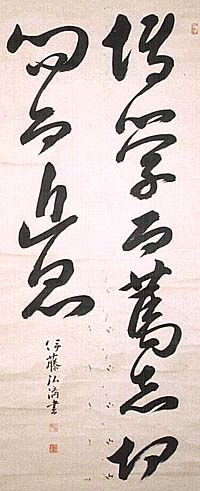 博学而篤志切
問而近思
伊藤弘済書